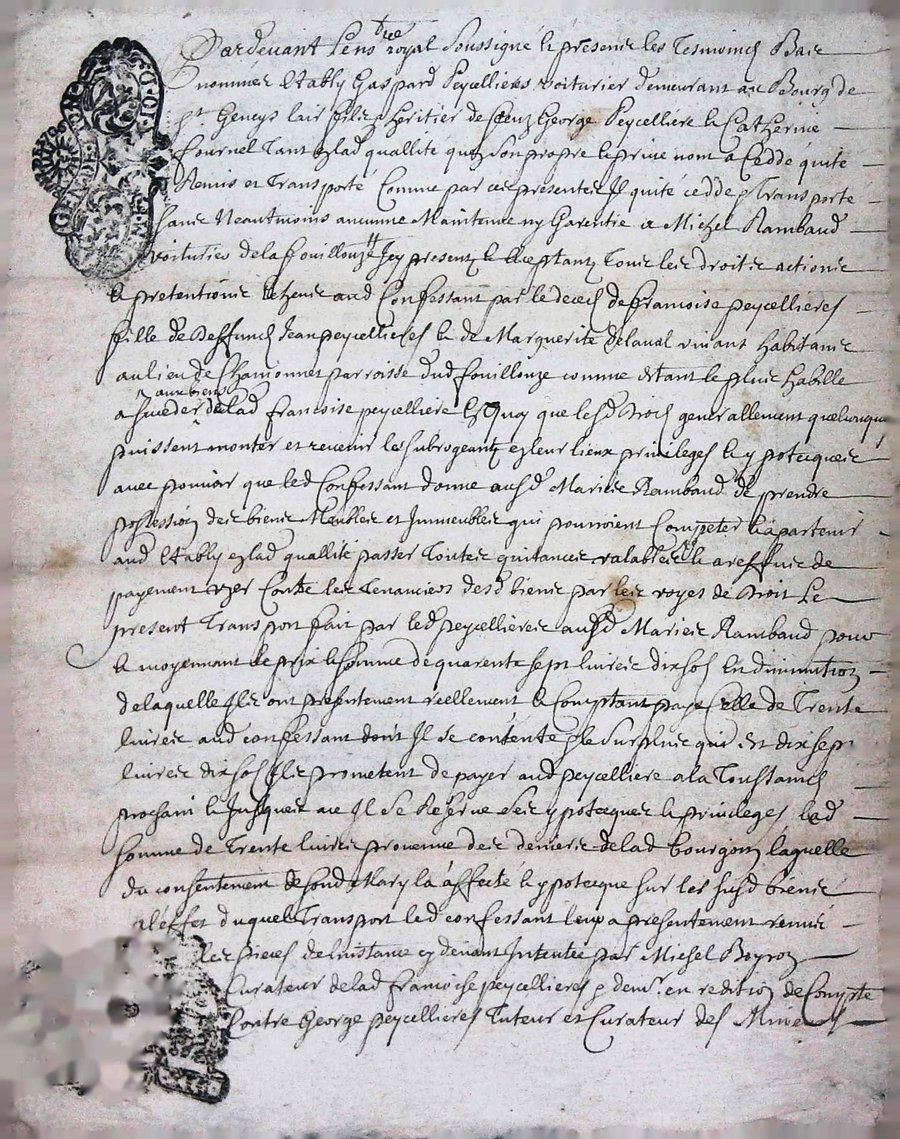 Pardevant le no^tre royal Soussigné & présence les Tesmoings Bas
nommés Estably Gaspard Peycellieres voiturier demeurant au Bourg de
st Geneys lair filz & heritier de feuz George Peycelliere & Catherine
fournel Tant ezlad quallité quez Son propre & prive nom a Cedde quité
Remis et Transporté Comme par ces presentes Il quite cedde & Transporte
sans Neautmoins aucunne Maintenue ny Garentie a Michel Rambaud
voiturier de la fouillouze Icy present & acceptant Tous les droits actions
& pretentions aud Confessant par le deces de francoise peycellieres
fille de deffunctz Jean peycellieres & de Marguerite delaval vivant habitans
au lieu de Chamonnet parroisse dud fouillouze comme estant le plus habille
a succeder aux biens de lad francoise peycelliere Ez Quoy que lesd droictz generallement quelconques
puissent monter et revenir les subrogeantz ezleur lieux privileges & ypotecques
avec pouvoir que led Confessant donne ausd Mariés Rambaud de prendre
possession des biens Meubles et Immeubles qui pourroient Competer & apartenir
aud Estably ezlad quallité passer Toutes quitances valables & a reffus de
payement uzer Contre les Tenanciers desd biens par les voyes de Droit Le
present Transport fait par led peycellieres ausd Mariés Rambaud pour
& moyennant le prix & somme de quarente sept livres dix sols En diminution
de laquelle Ilz ont presentement reellement & Comptant payé Celle de Trente
livres aud confessant dont Il se contente & le Surplus qui est dix sept
livres dix sols Ilz prometent de payer aud peycelliere a la Toussainctz
prochain & Jusques au Il se Reserve ses ypotecques & privileges lad
somme de Trente livres provenue des deniers de lad bourgoin laquelle
du consentement de sond Mary la affecté & ypotecque sur les susd biens
a l'effet duquel Transport led confessant leur a presentement remis
les pieces de linstance cy devant Intentée par Michel Boyron
Curateur de lad francoise peycellieres & dem^r. en redition de Compte
Contre George peycellieres Tuteur et Curateur des